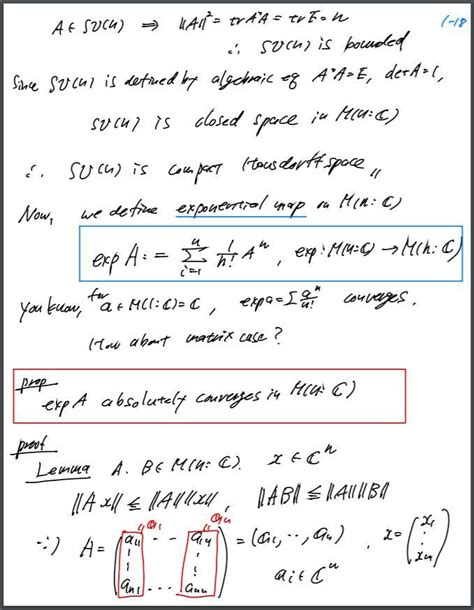 A ∈ SU(n) ⟹ ‖A‖² = tr A*A = tr E = n
1-18
∴ SU(n) is bounded
Since SU(n) is defined by algebraic eq A*A=E, det A=1,
SU(n) is closed space in M(n:ℂ)
∴ SU(n) is compact Hausdorff space
Now, we define exponential map on M(n:ℂ)
exp A := Σ_{i=1}^{n} 1/n! Aⁿ, exp: M(n:ℂ) → M(n:ℂ)
You know, for a ∈ M(1:ℂ)=ℂ, exp a = Σ aⁿ/n! converges.
How about matrix case?
prop
exp A absolutely converges in M(n:ℂ)
proof
Lemma A. B ∈ M(n:ℂ). x ∈ ℂⁿ
‖Ax‖ ≤ ‖A‖‖x‖, ‖AB‖ ≤ ‖A‖‖B‖
a₁ aₙ
∵) A = (a₁₁ ... a₁ₙ ⋮ ⋮ aₙ₁ ... aₙₙ) = (a₁, ..., aₙ), x = (x₁ ⋮ xₙ)
aᵢ ∈ ℂⁿ